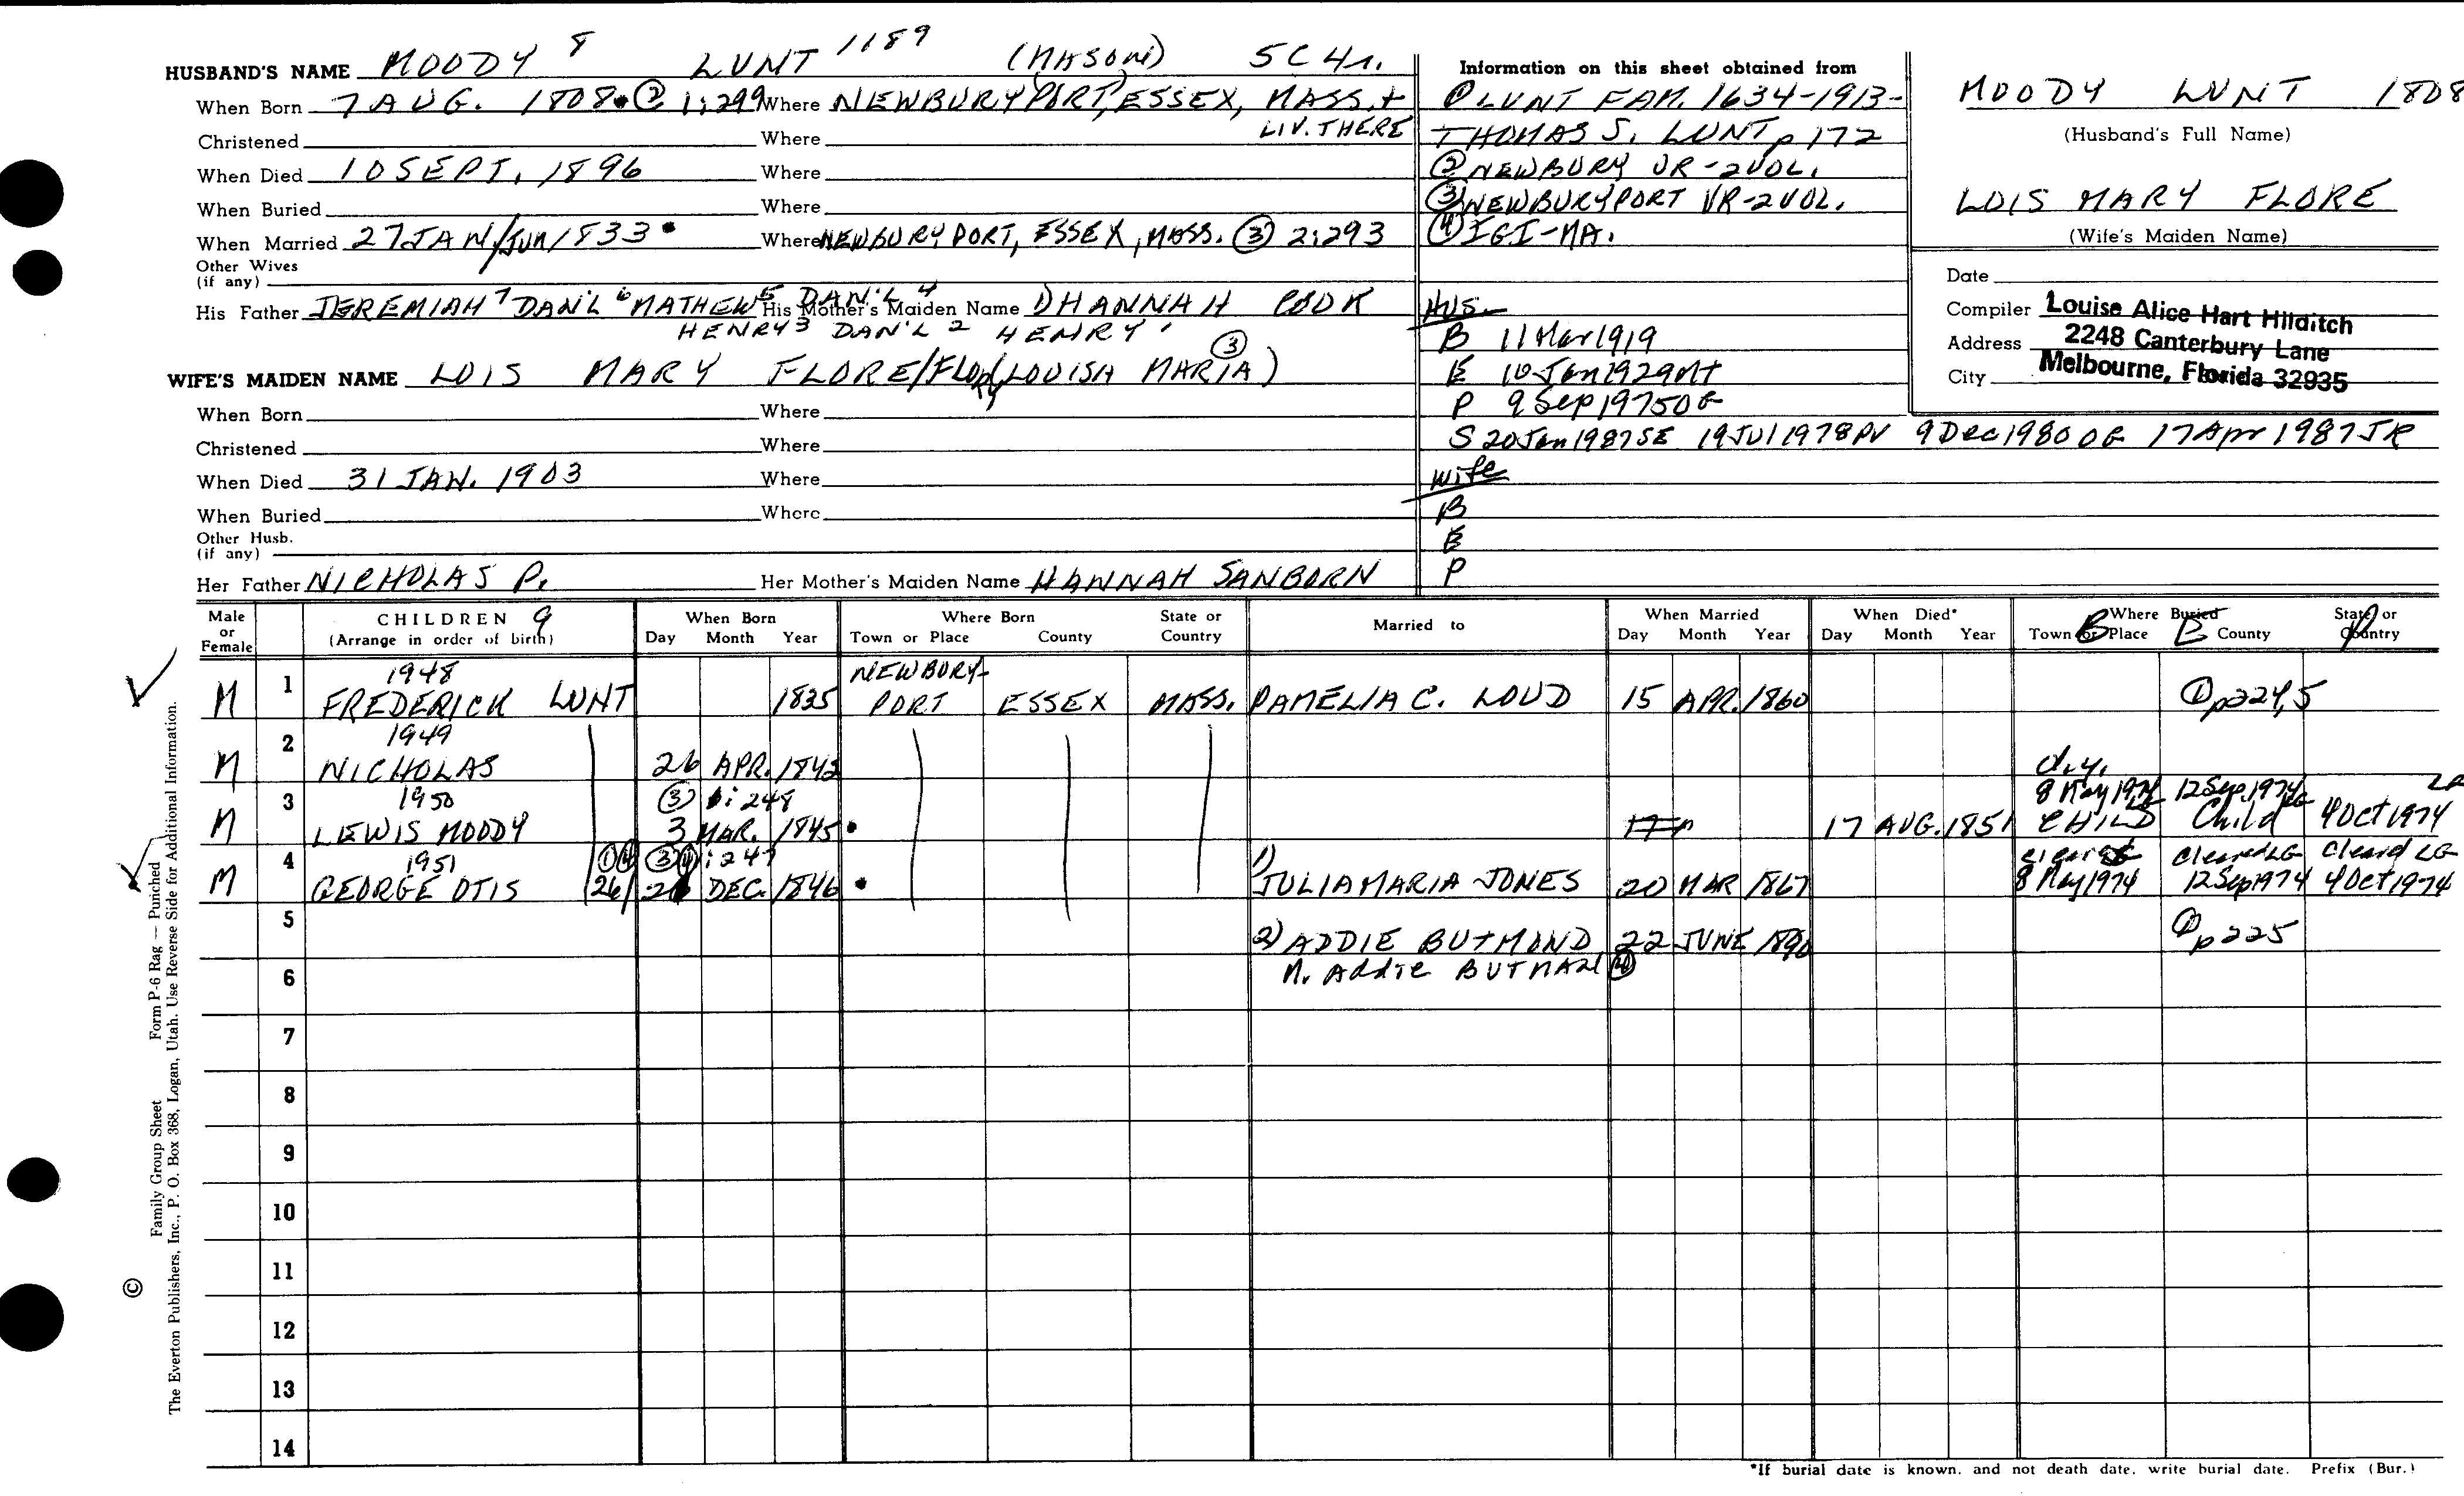 HUSBAND'S NAME MOODY 8 LUNT 1189 (MASON) 5C4r.
When Born 7 AUG. 1808 • ② 1:299 Where NEWBURYPORT, ESSEX, MASS. +
LIV. THERE
Christened Where
When Died 10 SEPT. 1896 Where
When Buried Where
When Married 27 JAN/JUN 1833 • Where NEWBURYPORT, ESSEX, MASS. ③ 2:293
Other Wives
(if any)
His Father JEREMIAH 7 DAN'L 6 MATHEW 5 DAN'L 4 His Mother's Maiden Name HANNAH COOK
HENRY 3 DAN'L 2 HENRY 1
WIFE'S MAIDEN NAME LOIS MARY FLORE/ (LOUISA MARIA) ③
When Born Where
Christened Where
When Died 31 JAN. 1903 Where
When Buried Where
Other Husb.
(if any)
Her Father NICHOLAS P. Her Mother's Maiden Name HANNAH SANBORN
Information on this sheet obtained from
① LUNT FAM. 1634-1913-
THOMAS S. LUNT p 172
② NEWBURY VR-2VOL.
③ NEWBURYPORT VR-2VOL.
④ IGI-MA.
HUS.
B 11 Mar 1919
E 10 Jan 1929 MT
P 9 Sep 1975 OG
S 20 Jan 1987 SE 19 JUl 1978 PV 9 Dec 1980 OG 17 Apr 1987 JR
Wife
B
E
P
MOODY LUNT 1808
(Husband's Full Name)
LOIS MARY FLORE
(Wife's Maiden Name)
Date
Compiler Louise Alice Hart Hilditch
Address 2248 Canterbury Lane
City Melbourne, Florida 32935
Male or Female
CHILDREN 9
(Arrange in order of birth)
When Born
Day Month Year
Where Born
Town or Place County State or Country
Married to
When Married
Day Month Year
When Died*
Day Month Year
Where Buried
Town or Place County State or Country
B E P
1948 NEWBURY-
M 1 FREDERICK LUNT 1835 PORT ESSEX MASS. PAMELIA C. LOUD 15 APR. 1860 ① p224,5
1949
M 2 NICHOLAS 26 APR. 1842 d.y.
1950 ③ 1:248 8 May 1974 LG 12 Sep 1974 LG LG
M 3 LEWIS MOODY 3 MAR. 1845 • 17 AUG. 1851 CHILD Child 4 Oct 1974
1951 ①④ ③④ 1:247 1) cleared LG Cleared LG Cleard LG
M 4 GEORGE OTIS 26/ DEC. 1846 • JULIA MARIA JONES 20 MAR 1867 8 May 1974 12 Sep 1974 4 Oct 1974
5 2) ADDIE BUTMOND 22 JUNE 1890 ① p225
6 M. Addie BUTMAN ④
7
8
9
10
11
12
13
14
*If burial date is known, and not death date, write burial date. Prefix (Bur.)
© Family Group Sheet Form P-6 Rag — Punched
The Everton Publishers, Inc., P. O. Box 368, Logan, Utah. Use Reverse Side for Additional Information.